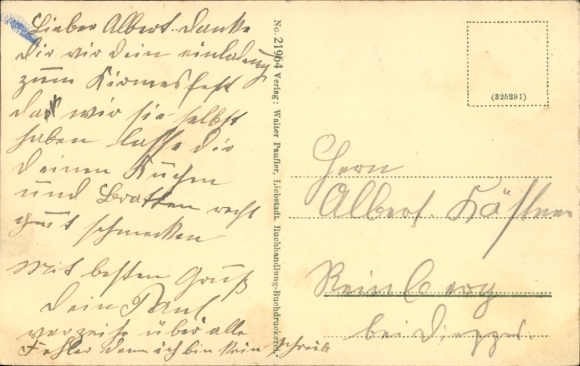 Lieber Albert. danke
dir vir dein einladung
zum Kirmesfest
da wir sie selbst
haben lasse dir
deinen Kuchen
und Bratten recht
gut schmecken
Mit besten Gruß
Dein Paul
verzeihe über alle
Fehler denn ich bin kein schreib
No. 21964 Verlag: Walter Paufler, Liebstadt, Buchhandlung-Buchdruckerei
(325291)
Herrn
Albert. Kästner
Reinberg
bei